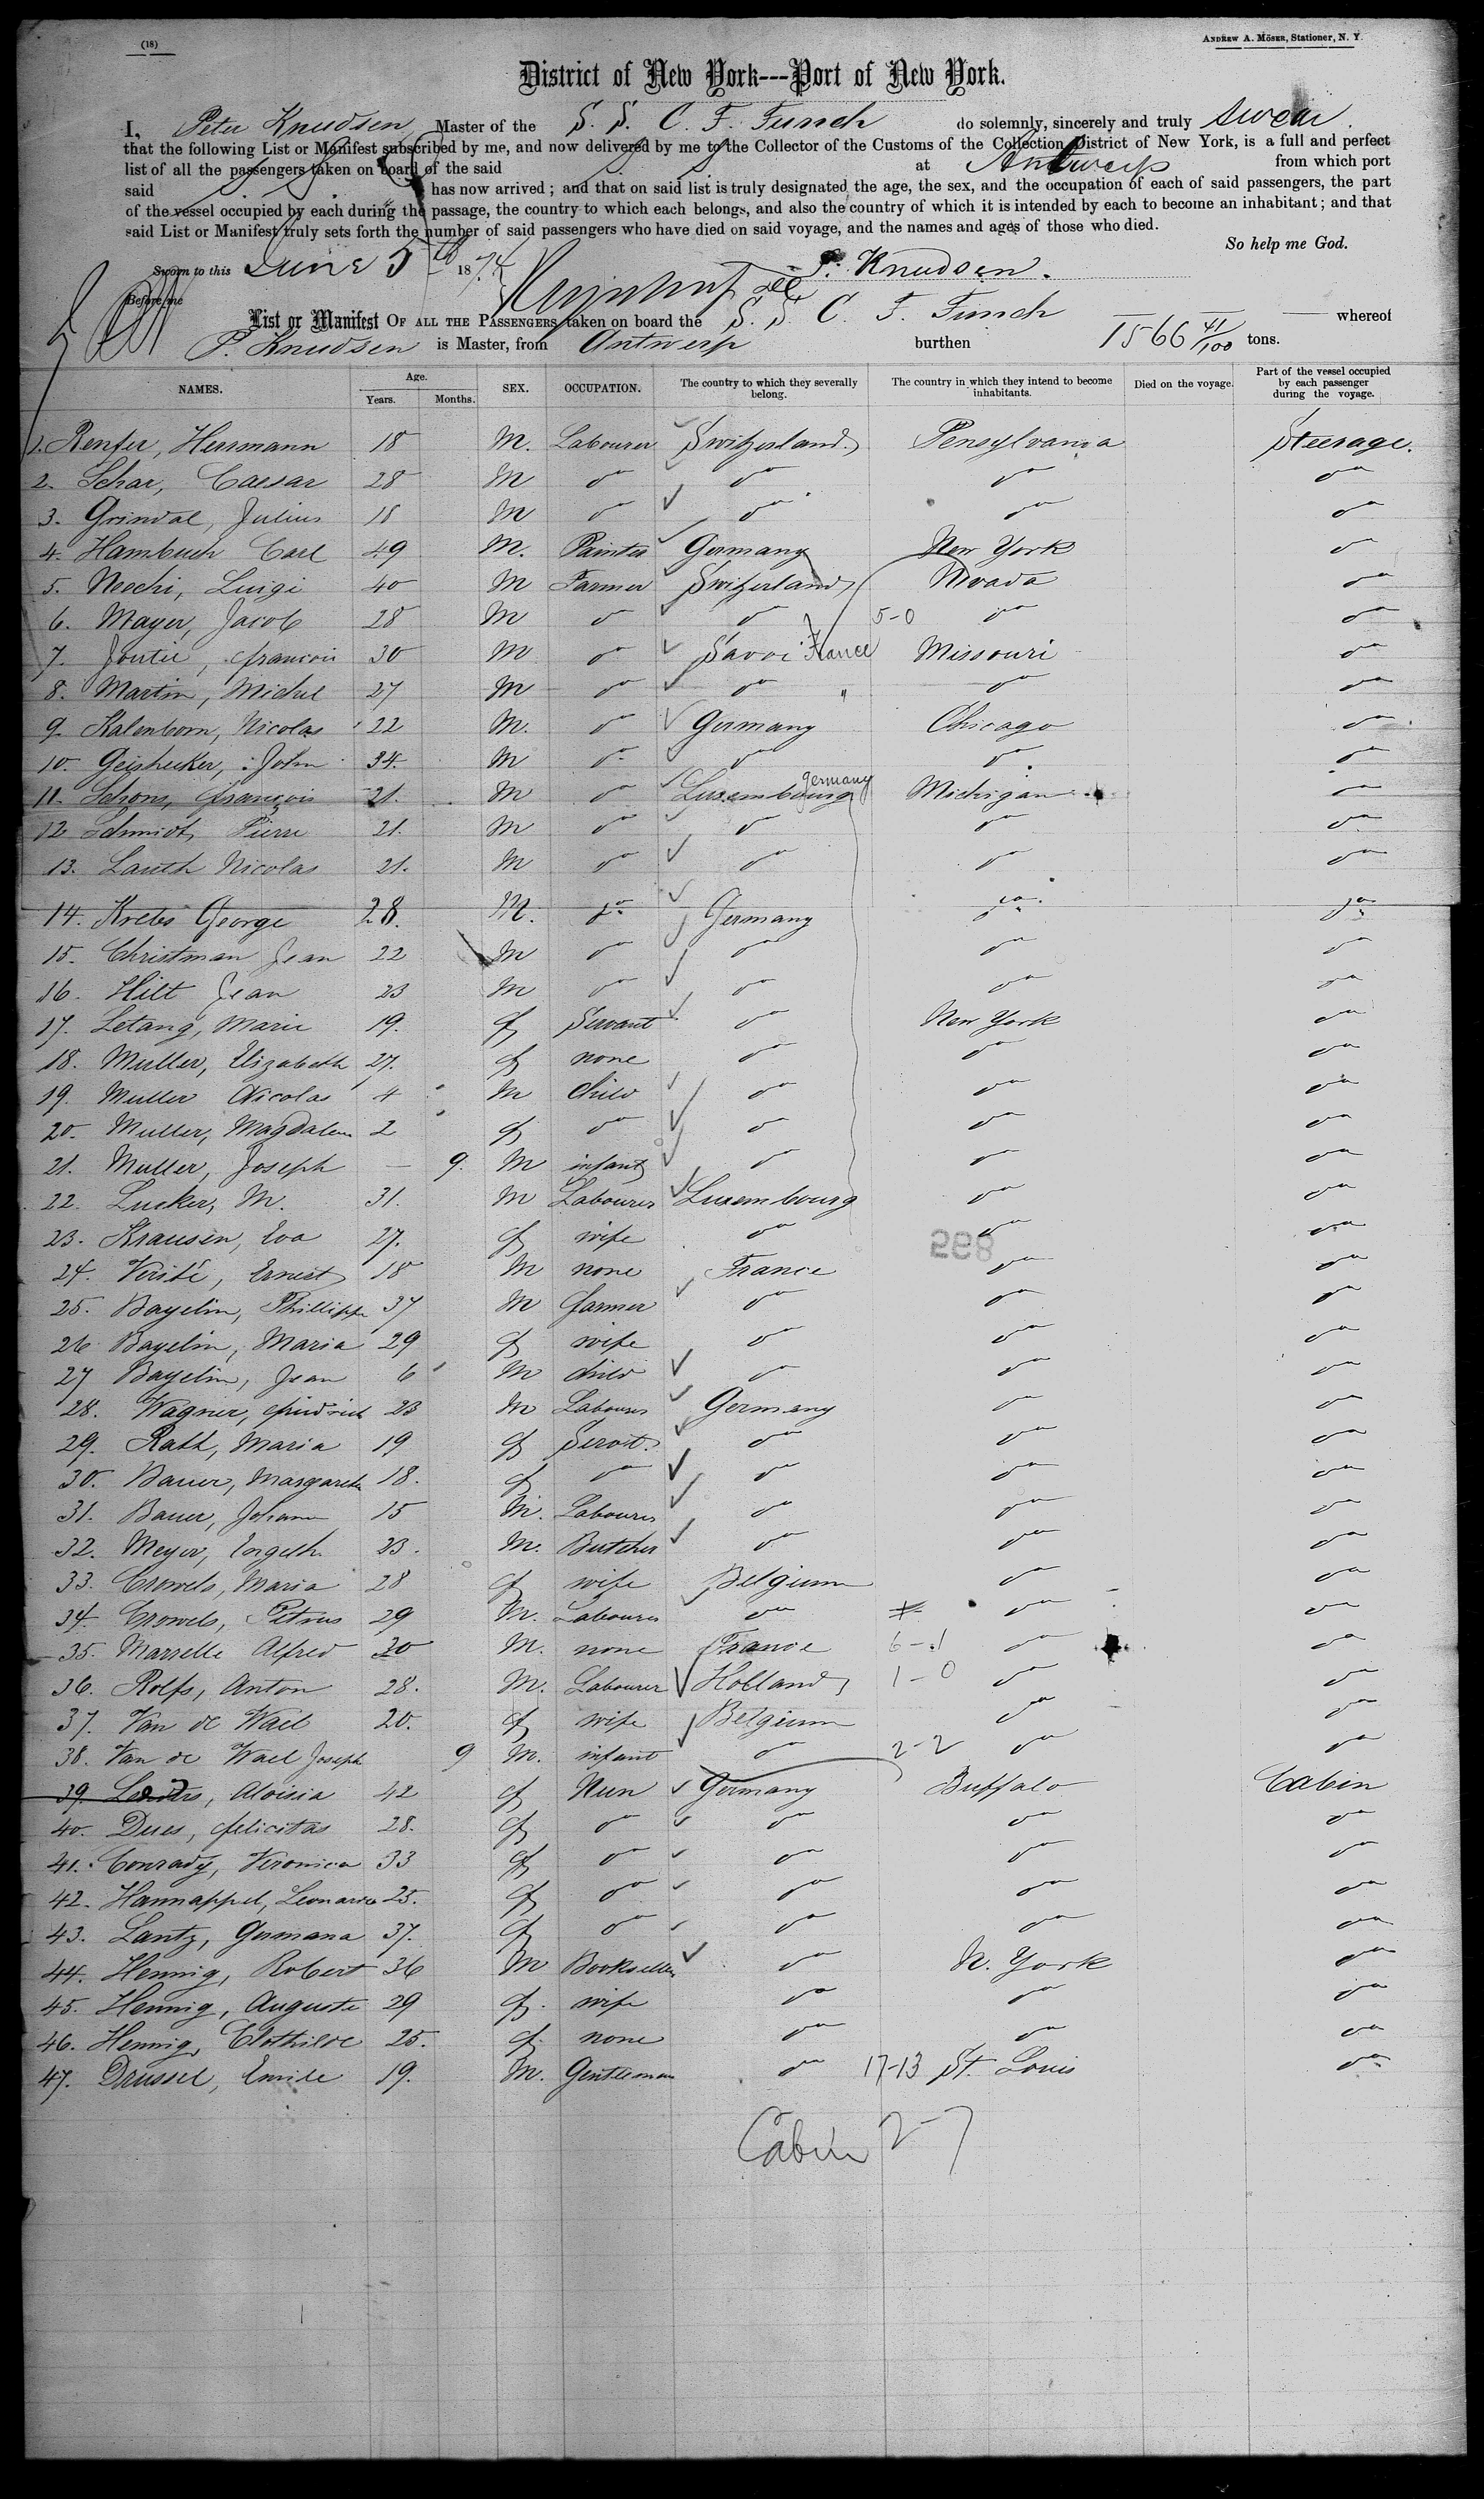 (18)
ANDREW A. MÖSER, Stationer, N. Y.
District of New York---Port of New York.
I, Peter Knudsen Master of the S. S. C. F. Funch do solemnly, sincerely and truly swear.
that the following List or Manifest subscribed by me, and now delivered by me to the Collector of the Customs of the Collection District of New York, is a full and perfect
list of all the passengers taken on board of the said at Antwerp from which port
said has now arrived; and that on said list is truly designated the age, the sex, and the occupation of each of said passengers, the part
of the vessel occupied by each during the passage, the country to which each belongs, and also the country of which it is intended by each to become an inhabitant; and that
said List or Manifest truly sets forth the number of said passengers who have died on said voyage, and the names and ages of those who died.
So help me God.
Sworn to this June 5th 1874 P. Knudsen.
Before me
List or Manifest OF ALL THE PASSENGERS taken on board the S. S. C. F. Funch whereof
P. Knudsen is Master, from Antwerp burthen 1566 41/100 tons.
NAMES. Age. Years. Months. SEX. OCCUPATION. The country to which they severally belong. The country in which they intend to become inhabitants. Died on the voyage. Part of the vessel occupied by each passenger during the voyage.
1. Renfer, Herrmann 18 M. Labourer Switzerland Pensylvania Steerage.
2. Schar, Caesar 28 M do do do do
3. Grindal, Julius 18 M do do do do
4. Hambuch Carl 49 M. Painter Germany New York do
5. Necchi, Luigi 40 M Farmer Switzerland Nevada do
6. Mayer, Jacob 28 M do do 5-0 do do
7. francois 30 M do Savoi France Missouri do
8. Martin, Michel 27 M do do " do do
9. Kalenborn, Nicolas 22 M. do Germany Chicago do
10. Geishecker, John 34. M do do do do
11. Schons, francois 21. M do Luxembourg Germany Michigan do
12 Schmidt, Pierre 21. M do do do do
13. Lauth Nicolas 21. M do do do do
14. Krebs George 28. M. do Germany do do
15. Christman Jean 22 M do do do do
16. Hilt Jean 23 M do do do do
17. Letang, Marie 19. f Servant do New York do
18. Muller, Elizabeth 27. f none do do do
19. Muller Nicolas 4 M child do do do
20. Muller, Magdalena 2 f do do do do
21. Muller, Joseph — 9. M infant do do do
22. Lucker, M. 31. M Labourer Luxembourg do do
23. Krausen, Eva 27. f wife do do do
24. Verité, Ernest 18 M none France do do
25. Bayelin, Phillippe 37 M farmer do do do
26 Bayelin, Maria 29 f wife do do do
27 Bayelin, Jean 6 M child do do do
28. Wagner, friedrich 23 M Labourer Germany do do
29. Rath, Maria 19 f Servt. do do do
30. Bauer, Margareth 18. f do do do do
31. Bauer, Johann 15 M. Labourer do do do
32. Meyer, 23. M. Butcher do do do
33. Crowels, Maria 28 f wife Belgium do do
34. Crowels, Petrus 29 M. Labourer do do do
35. Marselle Alfred 30 M. none France 6-1 do do
36. Rolfs, Anton 28. M. Labourer Holland 1-0 do do
37. Van de Wael 20. f wife Belgium do do
38. Van de Wael Joseph 9 M. infant do 2-2 do do
39. Aloisia 42 f Nun Germany Buffalo Cabin
40. Dues, felicitas 28. f do do do do
41. Conrady, Veronica 33 f do do do do
42. Hannappel, Leonarda 25. f do do do do
43. Lantz, Germana 37. f do do do do
44. Hennig, Robert 36 M Bookseller do N. York do
45. Hennig, Auguste 29 f. wife do do do
46. Hennig, Clothilde 25. f. none do do do
47. Drussel, Emile 19. M. Gentleman do 17-13 St. Louis do
Cabin 2-7